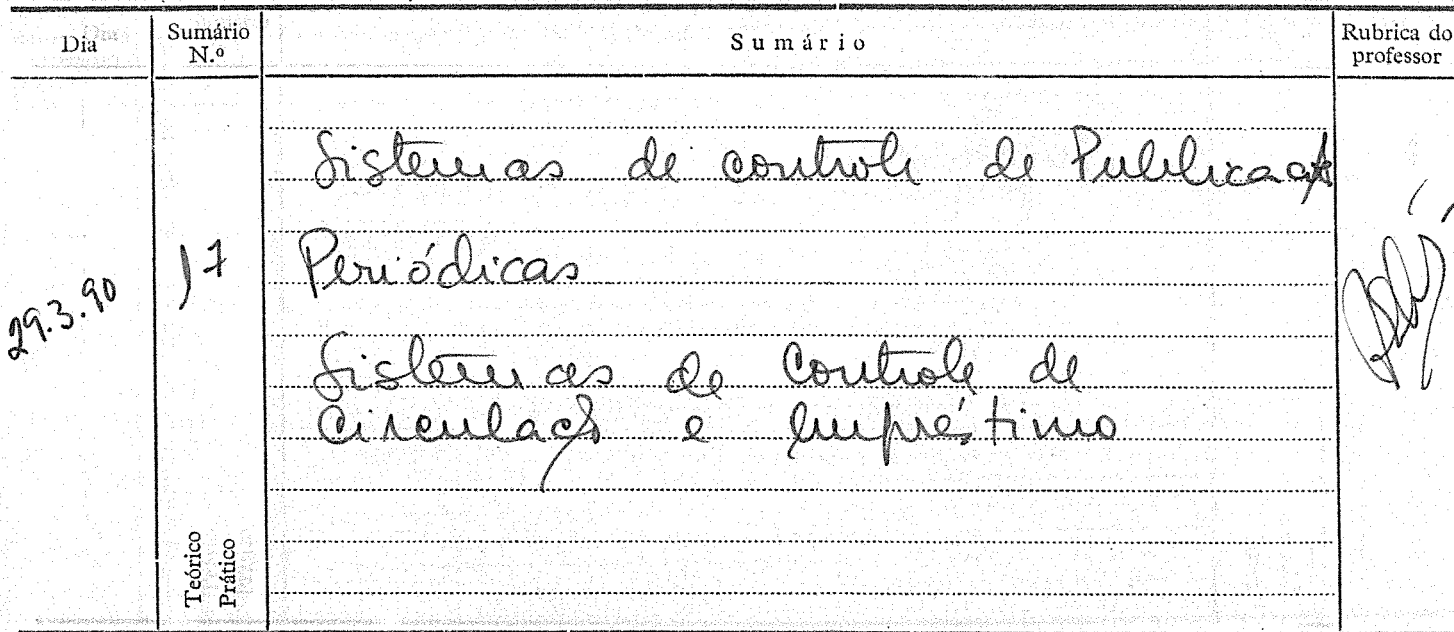 Dia
Sumário
N.º
Sumário
Rubrica do
professor
29.3.90
17
Sistemas de controle de
Periódicas
Sistemas de Controle de
Circulação e Empréstimo
Teórico
Prático